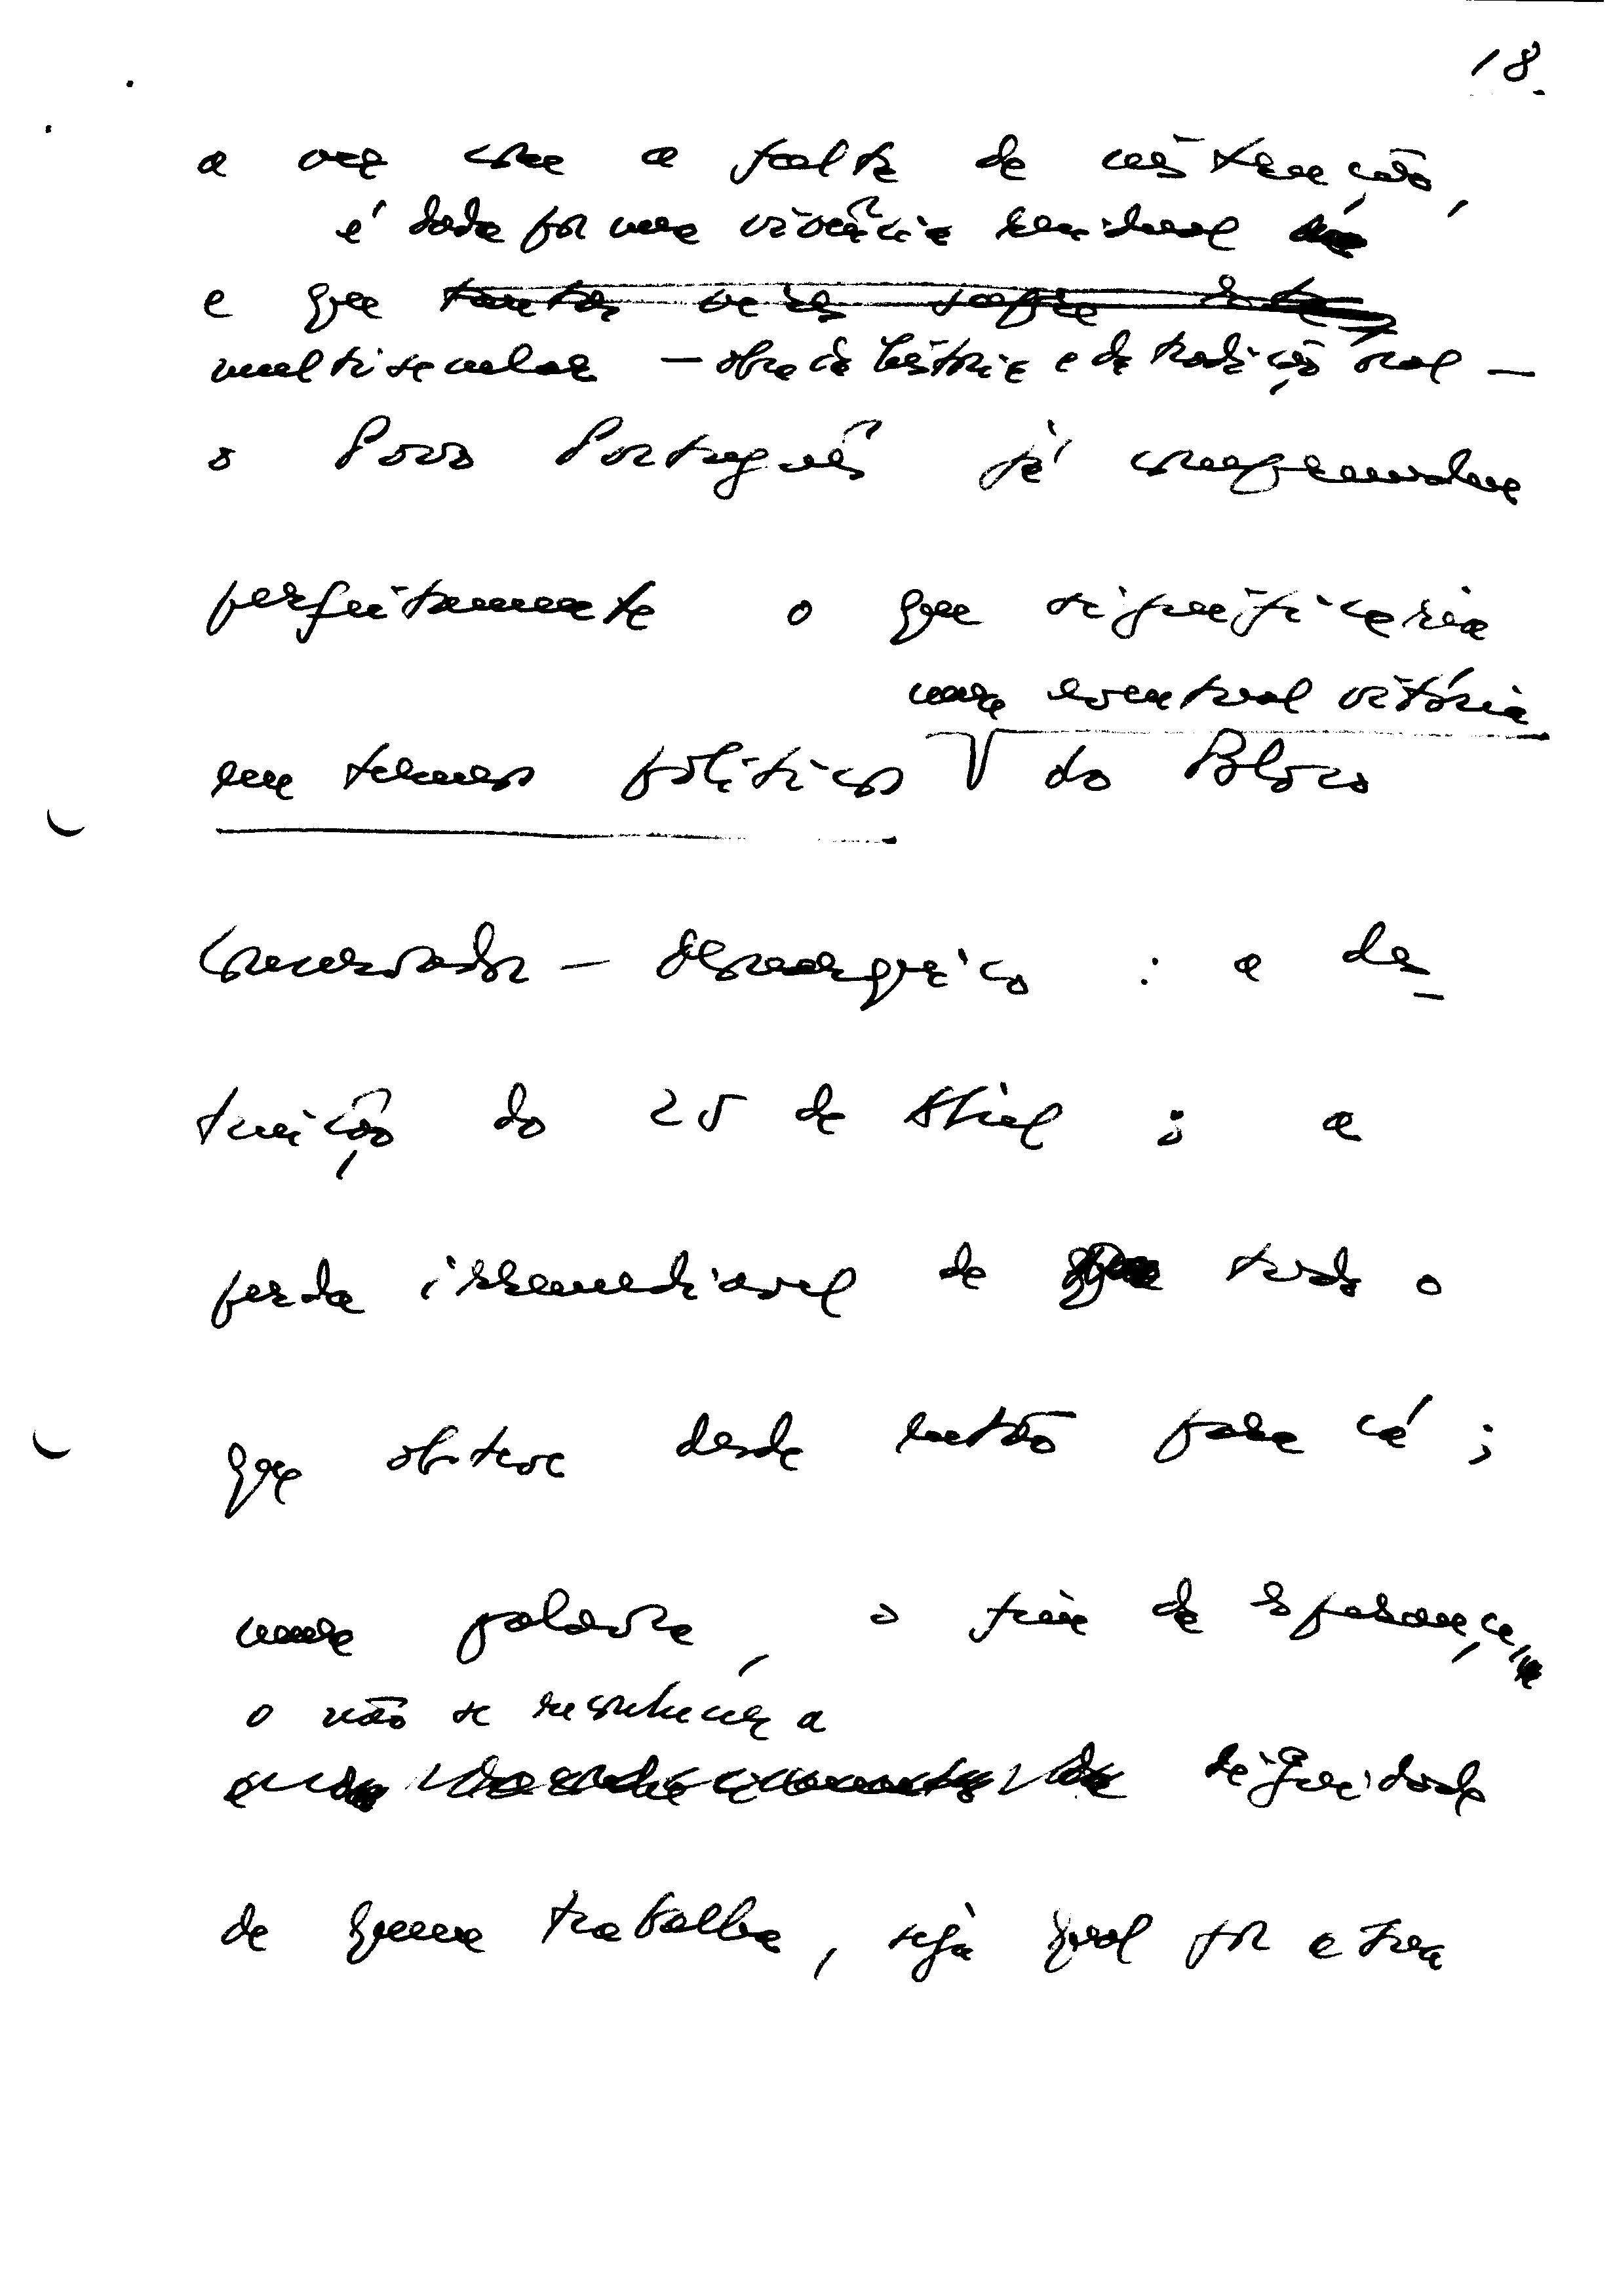 18.
a ver com a falta de instrução,
é dada por uma vivência
e que tantas vezes sofre
multisecular — obra da história e da tradição oral —
o Povo Português já compreendeu
perfeitamente o que significaria
uma eventual vitória
em termos políticos do Bloco
Conservador-Oligárquico : a des-
truição do 25 de Abril ; a
perda irremediável de tudo o
que obteve desde então para cá ;
numa palavra, o fim da esperança,
o não se reconhecer a
dignidade
de quem trabalha, seja qual for a sua